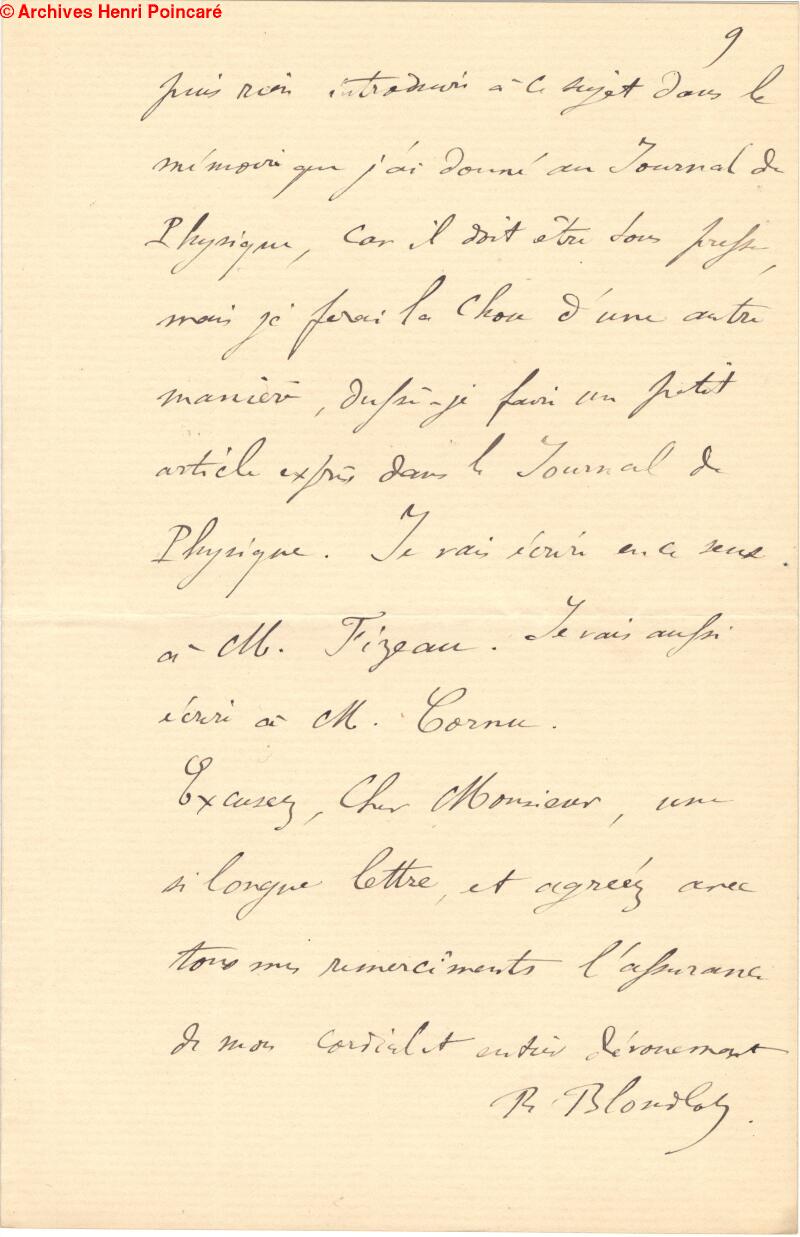 © Archives Henri Poincaré
9
puis rien introduire à ce sujet dans le
mémoire que j'ai donné au Journal de
Physique, car il doit être sous presse,
mais je ferai la chose d'une autre
manière, dussé-je faire un petit
article exprès dans le Journal de
Physique. Je vais écrire en ce sens
à M. Fizeau. Je vais aussi
écrire à M. Cornu.
Excusez, Cher Monsieur, une
si longue lettre, et agréez avec
tous mes remerciments l'assurance
de mon cordial et entier dévouement
R. Blondlot.